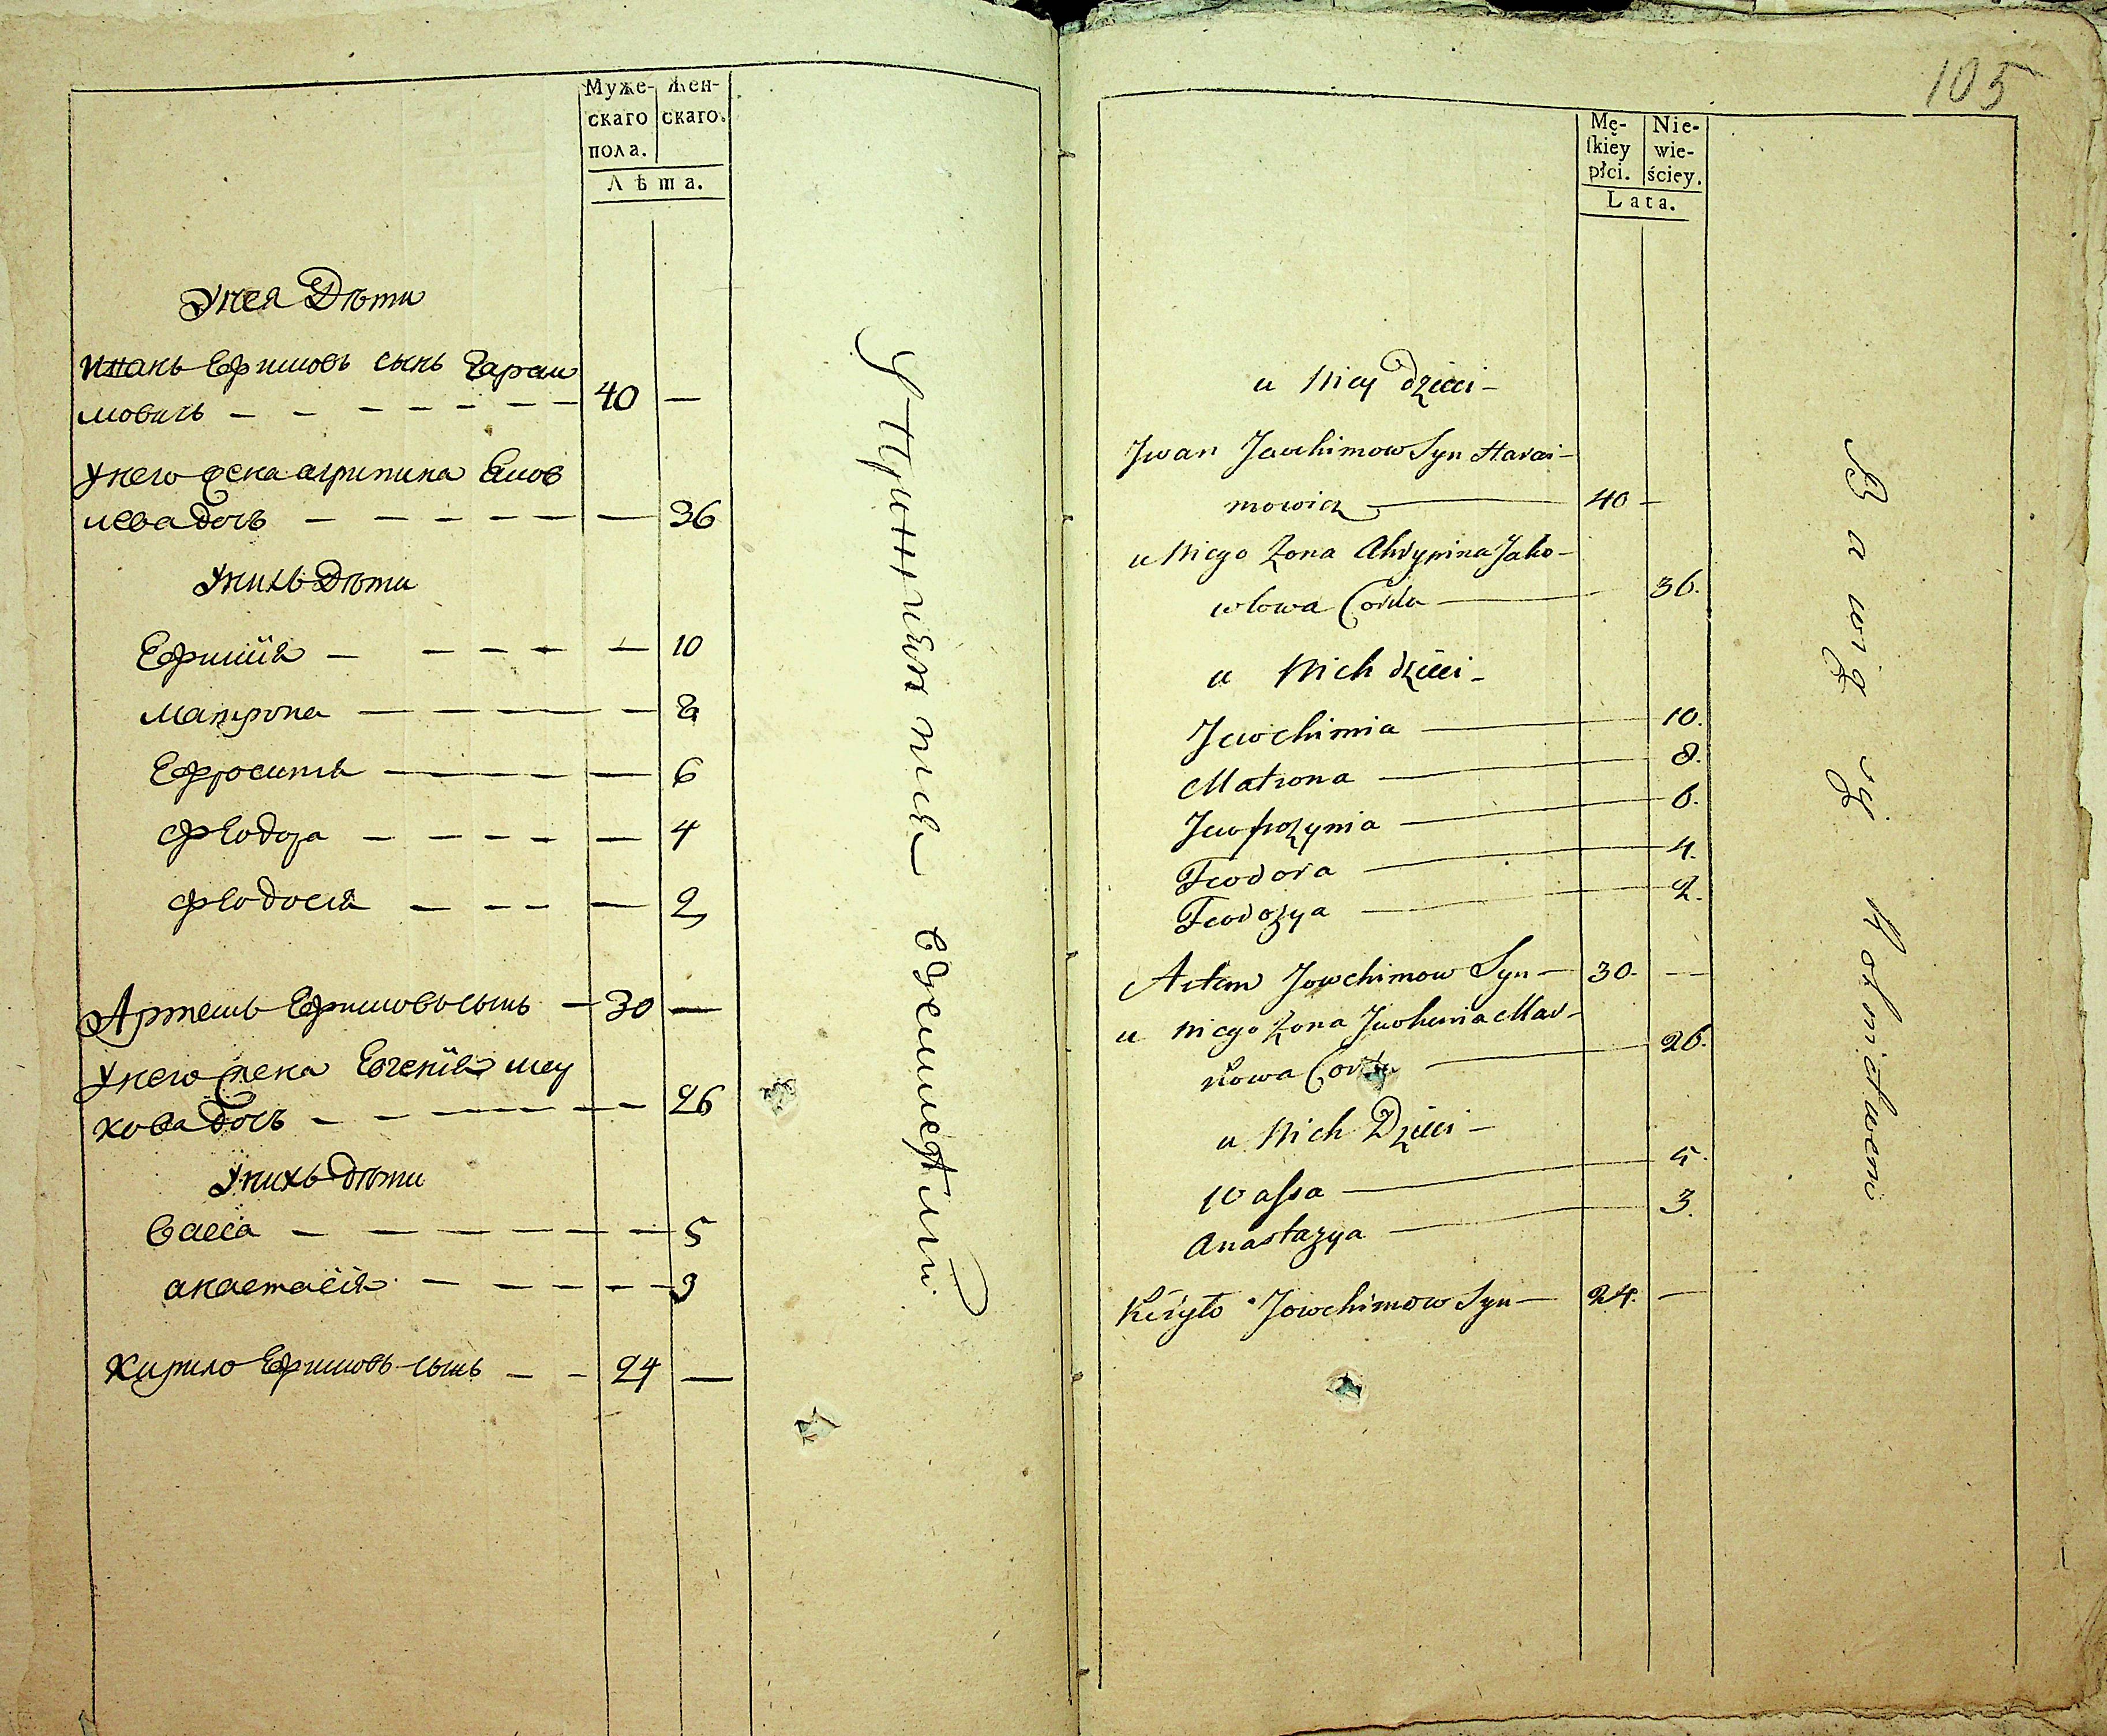 Муже- Жен-
скаго скаго.
пола.
Лѣта.
У нея Дѣти
Иванъ Ефимовъ сынъ Гараи
мовичъ — 40 —
У него жена агрипина Еков
лева дочь — 36
У нихъ Дѣти
Ефимия — 10
Матрона — 8
Ефросиния — 6
Феодора — 4
Феодосия — 2
Артемъ Ефимовъ сынъ — 30 —
У него жена Евгения
дочь — 26
У нихъ дѣти
Васса — 5
анастасия — 3
Кирило Ефимовъ сынъ — 24 —
105
Mę- Nie-
ſkiey wie-
płci. ściey.
Lata.
u Niey dzieci —
Jwan Jewchimow Syn Harai-
mowicz — 40 —
u Niego Żona Ahrypina Jako-
wlowa Córka — 36.
u Nich dzieci —
Jewchimia — 10.
Matrona — 8.
Jewfrozynia — 6.
Feodora — 4.
Feodozya — 2.
Artem Jowchimow Syn — 30. —
u Niego Żona Jewhenia Mar-
kowa Córka — 26.
u Nich Dzieci —
Waſsa — 5.
Anastazya — 3.
Kiryło Jowchimow Syn — 24. —
Bawią się Rolnictwem